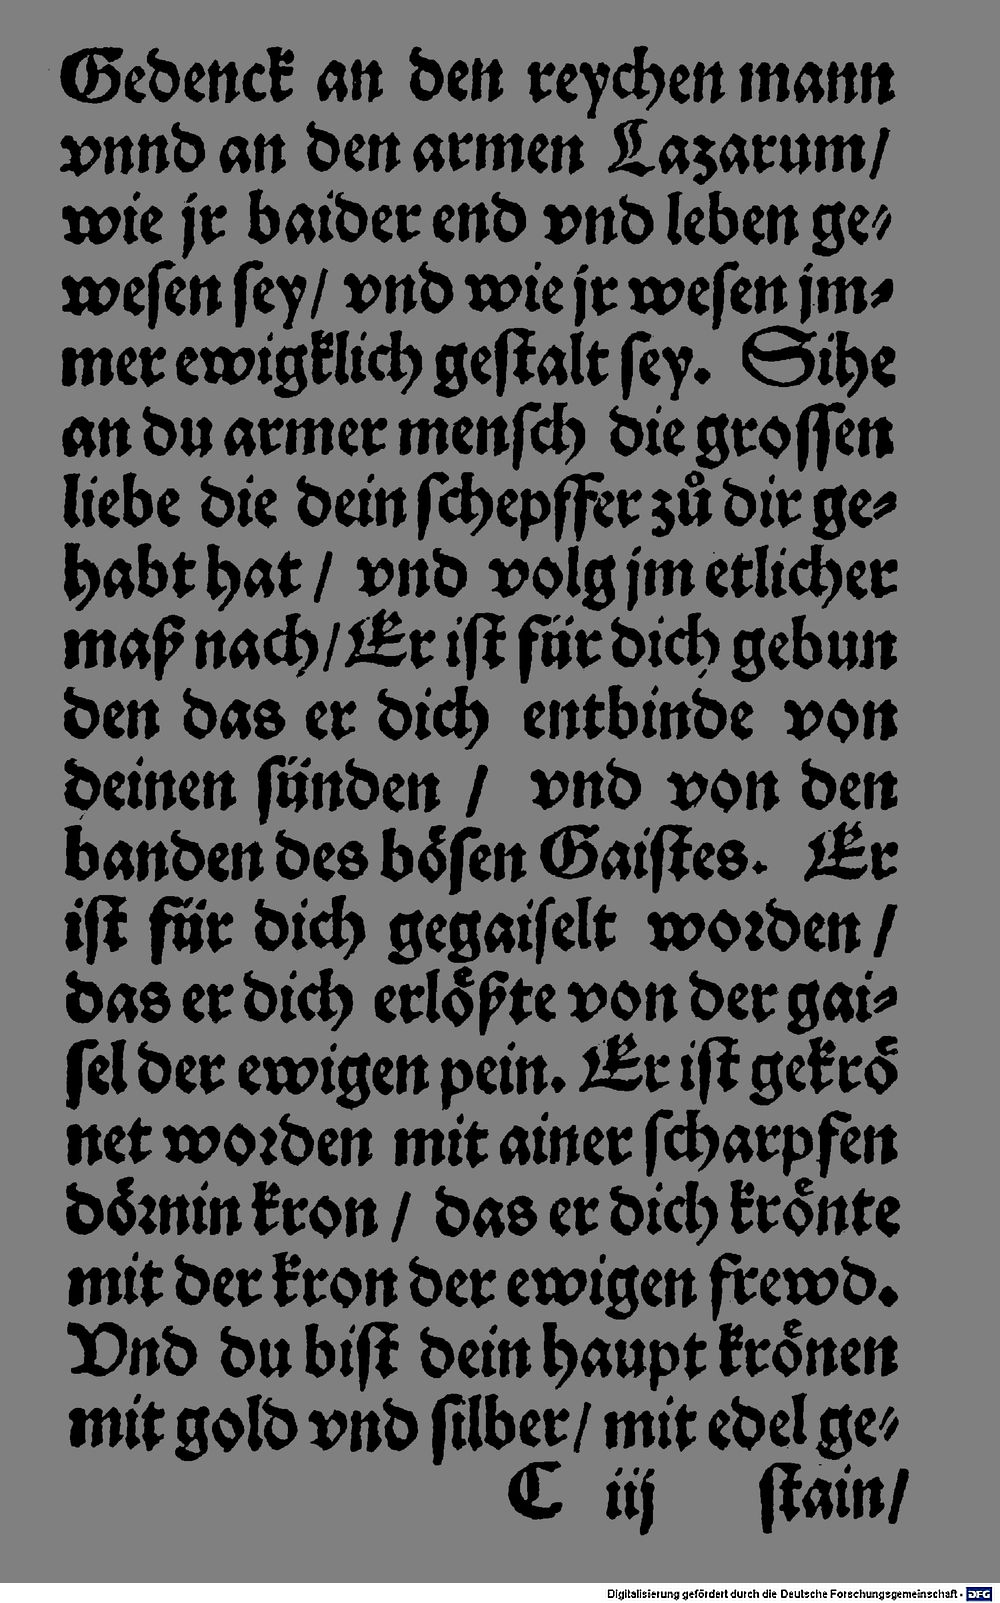 Gedenck an den reychen mann
vnnd an den armen Lazarum/
wie jr baider end vnd leben ge⸗
weſen ſey/ vnd wie jr weſen jm⸗
mer ewigklich geſtalt ſey. Sihe
an du armer menſch die groſſen
liebe die dein ſchepffer zů dir ge⸗
habt hat / vnd volg jm etlicher
maß nach/ Er iſt für dich gebun
den das er dich entbinde von
deinen ſünden / vnd von den
banden des boͤſen Gaiſtes. Er
iſt für dich gegaiſelt woꝛden /
das er dich erloͤßte von der gai⸗
ſel der ewigen pein. Er iſt gekroͤ
net woꝛden mit ainer ſcharpfen
doͤꝛnin kron / das er dich kroͤnte
mit der kron der ewigen frewd.
Vnd du biſt dein haupt kroͤnen
mit gold vnd ſilber/ mit edel ge⸗
C iij ſtain/
Digitalisierung gefördert durch die Deutsche Forschungsgemeinschaft - DFG